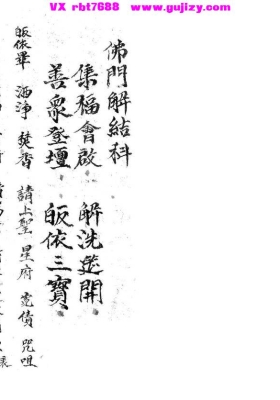 VX rbt7688 www.gujizy.com
佛門解結科
集福會啟 解洗筵開
善衆登壇 皈依三寶
皈依畢 洒淨 焚香 請上聖 星府 冤債 咒咀